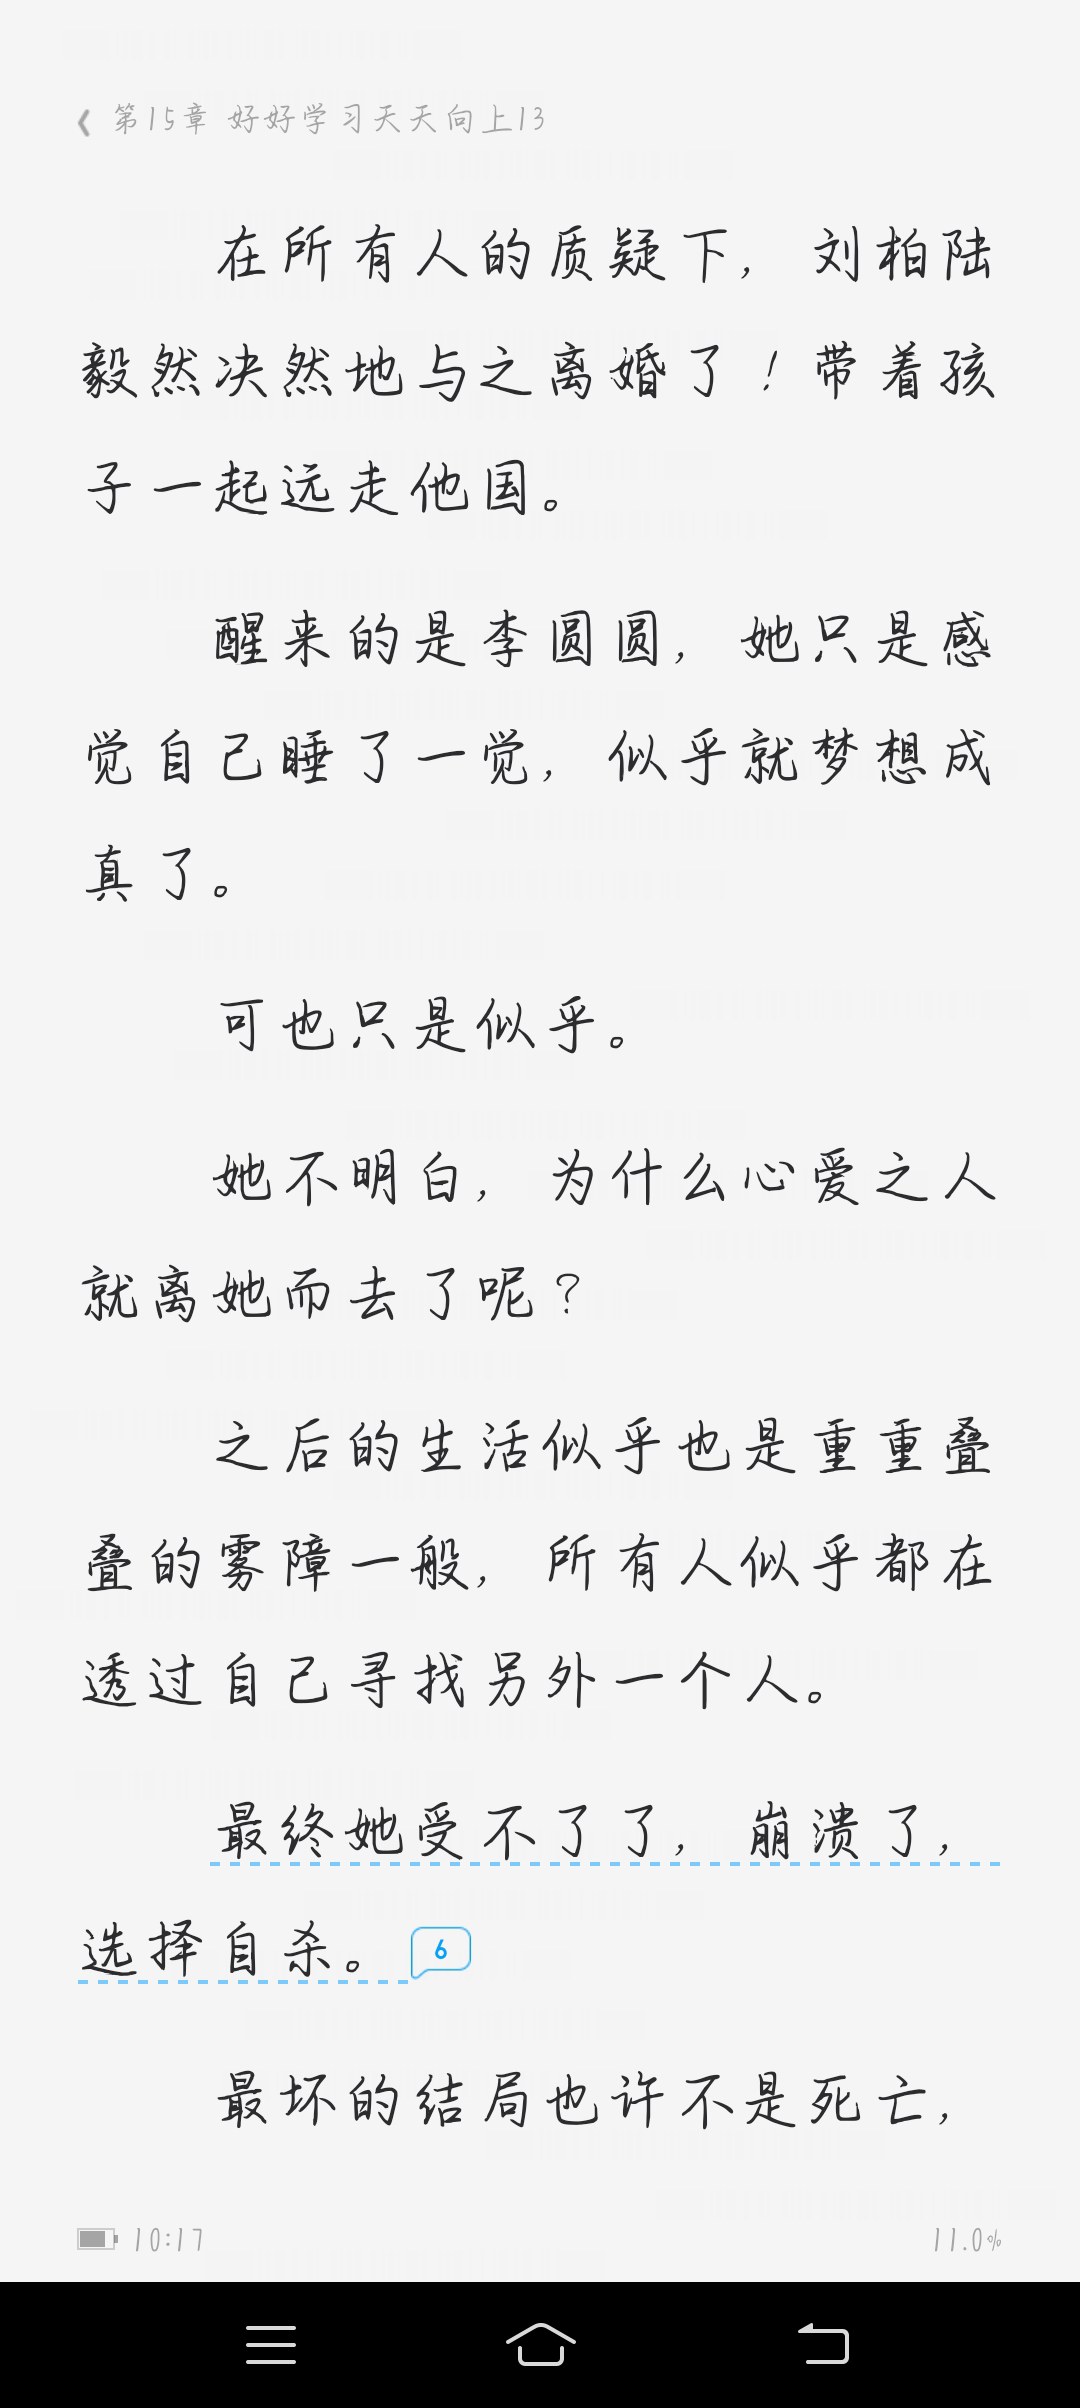 第15章 好好学习天天向上13
在所有人的质疑下，刘柏陆
毅然决然地与之离婚了！带着孩
子一起远走他国。
醒来的是李圆圆，她只是感
觉自己睡了一觉，似乎就梦想成
真了。
可也只是似乎。
她不明白，为什么心爱之人
就离她而去了呢？
之后的生活似乎也是重重叠
叠的雾障一般，所有人似乎都在
透过自己寻找另外一个人。
最终她受不了了，崩溃了，
选择自杀。 6
最坏的结局也许不是死亡，
10:17 11.0%